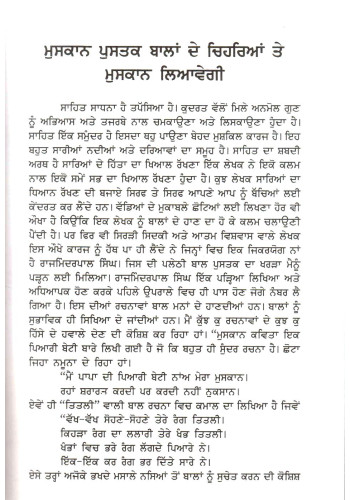 ਮੁਸਕਾਨ ਪੁਸਤਕ ਬਾਲਾਂ ਦੇ ਚਿਹਰਿਆਂ ਤੇ
ਮੁਸਕਾਨ ਲਿਆਵੇਗੀ
ਸਾਹਿਤ ਸਾਧਨਾ ਹੈ ਤਪੱਸਿਆ ਹੈ। ਕੁਦਰਤ ਵੱਲੋਂ ਮਿਲੇ ਅਨਮੋਲ ਗੁਣ
ਨੂੰ ਅਭਿਆਸ ਅਤੇ ਤਜਰਬੇ ਨਾਲ ਚਮਕਾਉਣਾ ਅਤੇ ਲਿਸਕਾਉਣਾ ਹੁੰਦਾ ਹੈ।
ਸਾਹਿਤ ਇੱਕ ਸਮੁੰਦਰ ਹੈ ਇਸਦਾ ਬਹੁ ਪਾਉਣਾ ਬੇਹਦ ਮੁਸ਼ਕਿਲ ਕਾਰਜ ਹੈ। ਇਹ
ਬਹੁਤ ਸਾਰੀਆਂ ਨਦੀਆਂ ਅਤੇ ਦਰਿਆਵਾਂ ਦਾ ਸਮੂਹ ਹੈ। ਸਾਹਿਤ ਦਾ ਸ਼ਬਦੀ
ਅਰਥ ਹੈ ਸਾਰਿਆਂ ਦੇ ਹਿੱਤਾਂ ਦਾ ਖਿਆਲ ਰੱਖਣਾ ਇੱਕ ਲੇਖਕ ਨੇ ਇਕੋ ਕਲਮ
ਨਾਲ ਇਕੋ ਸਮੇਂ ਸਭ ਦਾ ਖਿਆਲ ਰੱਖਣਾ ਹੁੰਦਾ ਹੈ। ਕੁਝ ਲੇਖਕ ਸਾਰਿਆਂ ਦਾ
ਧਿਆਨ ਰੱਖਣ ਦੀ ਬਜਾਏ ਸਿਰਫ ਤੇ ਸਿਰਫ ਆਪਣੇ ਆਪ ਨੂੰ ਬੱਚਿਆਂ ਲਈ
ਕੇਂਦਰਤ ਕਰ ਲੈਂਦੇ ਹਨ। ਵੱਡਿਆਂ ਦੇ ਮੁਕਾਬਲੇ ਛੋਟਿਆਂ ਲਈ ਲਿਖਣਾ ਹੋਰ ਵੀ
ਔਖਾ ਹੈ ਕਿਉਂਕਿ ਇਕ ਲੇਖਕ ਨੂੰ ਬਾਲਾਂ ਦੇ ਹਾਣ ਦਾ ਹੋ ਕੇ ਕਲਮ ਚਲਾਉਣੀ
ਪੈਂਦੀ ਹੈ। ਪਰ ਫਿਰ ਵੀ ਸਿਰੜੀ ਸਿਦਕੀ ਅਤੇ ਆਤਮ ਵਿਸ਼ਵਾਸ ਵਾਲੇ ਲੇਖਕ
ਇਸ ਔਖੇ ਕਾਰਜ ਨੂੰ ਹੱਥ ਪਾ ਹੀ ਲੈਂਦੇ ਨੇ ਜਿਨ੍ਹਾਂ ਵਿਚ ਇਕ ਜਿਕਰਯੋਗ ਨਾਂ
ਹੈ ਰਾਜਮਿੰਦਰਪਾਲ ਸਿੰਘ। ਜਿਸ ਦੀ ਪਲੇਠੀ ਬਾਲ ਪੁਸਤਕ ਦਾ ਖਰੜਾ ਮੈਨੂੰ
ਪੜ੍ਹਨ ਲਈ ਮਿਲਿਆ। ਰਾਜਮਿੰਦਰਪਾਲ ਸਿੰਘ ਇੱਕ ਪੜ੍ਹਿਆ ਲਿਖਿਆ ਅਤੇ
ਅਧਿਆਪਕ ਹੋਣ ਕਰਕੇ ਪਹਿਲੇ ਉਪਰਾਲੇ ਵਿਚ ਹੀ ਪਾਸ ਹੋਣ ਜੋਗੇ ਨੰਬਰ ਲੈ
ਗਿਆ ਹੈ। ਇਸ ਦੀਆਂ ਰਚਨਾਵਾਂ ਬਾਲ ਮਨਾਂ ਦੇ ਹਾਣਦੀਆਂ ਹਨ। ਬਾਲਾਂ ਨੂੰ
ਸੁਭਾਵਿਕ ਹੀ ਸਿਖਿਆ ਦੇ ਜਾਂਦੀਆਂ ਹਨ। ਮੈਂ ਕੁੱਝ ਕੁ ਰਚਨਾਵਾਂ ਦੇ ਕੁਝ ਕੁ
ਹਿੱਸੇ ਦੇ ਹਵਾਲੇ ਦੇਣ ਦੀ ਕੋਸ਼ਿਸ਼ ਕਰ ਰਿਹਾ ਹਾਂ। "ਮੁਸਕਾਨ ਕਵਿਤਾ ਇਕ
ਪਿਆਰੀ ਬੇਟੀ ਬਾਰੇ ਲਿਖੀ ਗਈ ਹੈ ਜੋ ਕਿ ਬਹੁਤ ਹੀ ਸੁੰਦਰ ਰਚਨਾ ਹੈ। ਛੋਟਾ
ਜਿਹਾ ਨਮੂਨਾ ਦੇ ਰਿਹਾ ਹਾਂ।
"ਮੈਂ ਪਾਪਾ ਦੀ ਪਿਆਰੀ ਬੇਟੀ ਨਾਂਅ ਮੇਰਾ ਮੁਸਕਾਨ।
ਰਹਾਂ ਸ਼ਰਾਰਤ ਕਰਦੀ ਪਰ ਕਰਦੀ ਨਹੀਂ ਨੁਕਸਾਨ।
ਏਵੇਂ ਹੀ "ਤਿਤਲੀ" ਵਾਲੀ ਬਾਲ ਰਚਨਾ ਵਿਚ ਕਮਾਲ ਦਾ ਲਿਖਿਆ ਹੈ ਜਿਵੇਂ
"ਵੱਖ-ਵੱਖ ਸੋਹਣੇ-ਸੋਹਣੇ ਤੇਰੇ ਰੰਗ ਤਿਤਲੀ।
ਕਿਹੜਾ ਰੰਗ ਦਾ ਲਲਾਰੀ ਤੇਰੇ ਖੰਭ ਤਿਤਲੀ।
ਖੰਭਾਂ ਵਿਚ ਭਰੇ ਰੰਗ ਲੱਗਦੇ ਪਿਆਰੇ ਨੇ।
ਇੱਕ-ਇੱਕ ਕਰ ਰੰਗ ਭਰ ਦਿੱਤੇ ਸਾਰੇ ਨੇ।
ਏਸੇ ਤਰ੍ਹਾਂ ਅਜੋਕੇ ਭਖਦੇ ਮਸਾਲੇ ਨਸਿਆਂ ਤੋਂ ਬਾਲਾਂ ਨੂੰ ਸੁਚੇਤ ਕਰਨ ਦੀ ਕੋਸ਼ਿਸ਼